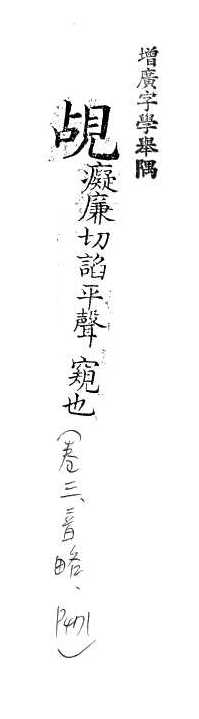 增廣字學舉隅
覘癡廉切諂平聲窺也(卷三、音略、P471)